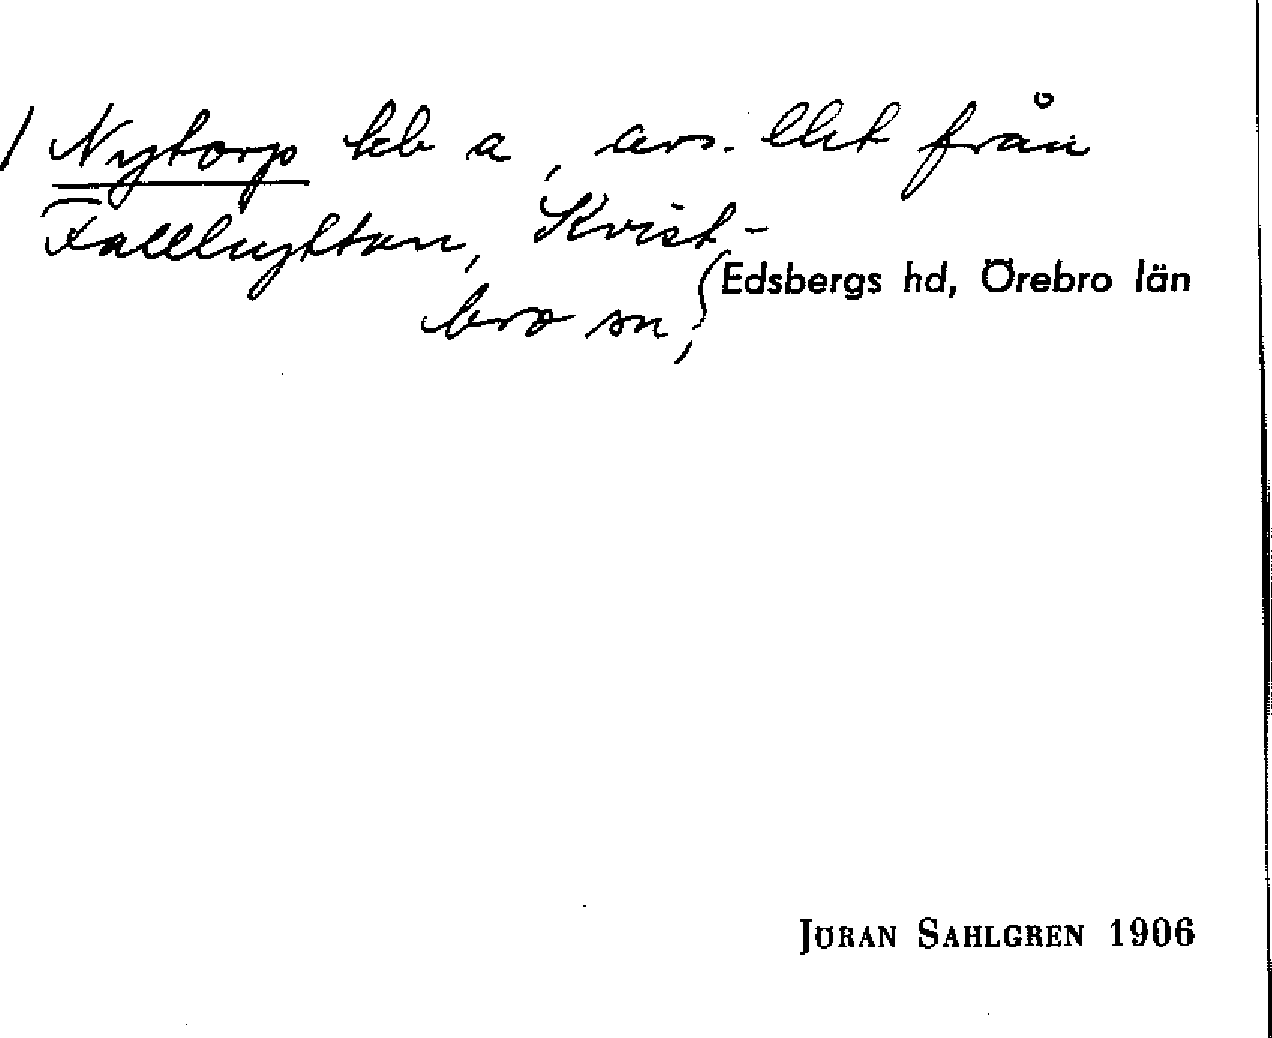 / Nytorp lhb a, avs. lht från
Fallhyttan, Kvist-
bro sn,
Edsbergs hd, Örebro län
JÖRAN SAHLGREN 1906